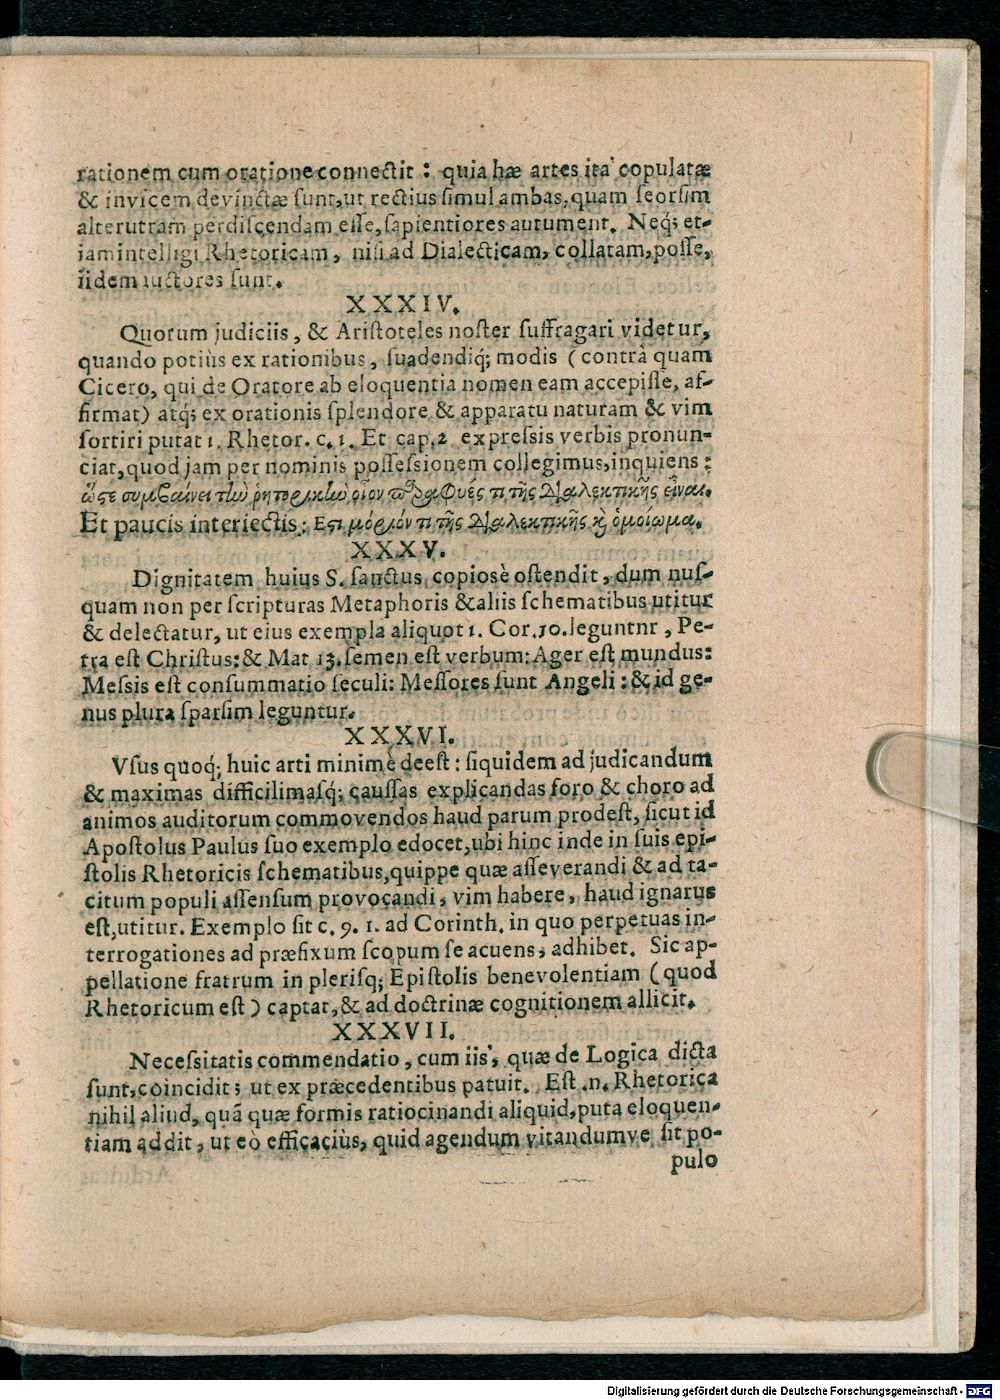 rationem cum oratione connectit : quia hæ artes ita copulatæ
& invicem devinctæ ſunt, ut rectius ſimul ambas, quam ſeorſim
alterutram perdiſcendam eſſe, ſapientiores autument. Neq́; et-
iam intelligi Rhetoricam, niſi ad Dialecticam, collatam, poſſe,
iidem auctores ſunt.
XXXIV.
Quorum judiciis, & Ariſtoteles noſter ſuffragari videtur,
quando potiùs ex rationibus, ſuadendiq́; modis (contrà quam
Cicero, qui de Oratore ab eloquentia nomen eam accepiſſe, af-
firmat) atq́; ex orationis ſplendore & apparatu naturam & vim
ſortiri putat 1. Rhetor. c. 1. Et cap. 2 expreſsis verbis pronun-
ciat, quod jam per nominis poſſeſsionem collegimus, inquiens :
ὥστε συμβαίνει τὴν ῥητορικὴν οἷον παραφυές τι τῆς Διαλεκτικῆς εἶναι.
Et paucis interiectis : Εστι μόριόν τι τῆς Διαλεκτικῆς καὶ ὁμοίωμα.
XXXV.
Dignitatem huius S. ſanctus copiosè oſtendit, dum nuſ-
quam non per ſcripturas Metaphoris & aliis ſchematibus utitur
& delectatur, ut eius exempla aliquot 1. Cor. 10. leguntnr, Pe-
tra eſt Chriſtus: & Mat 13. ſemen eſt verbum: Ager eſt mundus:
Meſsis eſt conſummatio ſeculi: Meſſores ſunt Angeli : & id ge-
nus plura ſparſim leguntur.
XXXVI.
Vſus quoq́; huic arti minimè deeſt : ſiquidem ad judicandum
& maximas difficilimaſq́; cauſſas explicandas foro & choro ad
animos auditorum commovendos haud parum prodeſt, ſicut id
Apoſtolus Paulus ſuo exemplo edocet, ubi hinc inde in ſuis epi-
ſtolis Rhetoricis ſchematibus, quippe quæ aſſeverandi & ad ta-
citum populi aſſenſum provocandi, vim habere, haud ignarus
eſt, utitur. Exemplo ſit c. 9. 1. ad Corinth. in quo perpetuas in-
terrogationes ad præfixum ſcopum ſe acuens, adhibet. Sic ap-
pellatione fratrum in pleriſq; Epiſtolis benevolentiam (quod
Rhetoricum eſt) captat, & ad doctrinæ cognitionem allicit.
XXXVII.
Neceſsitatis commendatio, cum iis, quæ de Logica dicta
ſunt, coincidit; ut ex præcedentibus patuit. Eſt .n. Rhetorica
nihil aliud, quã quæ formis ratiocinandi aliquid, puta eloquen-
tiam addit, ut eò efficaciùs, quid agendum vitandumve ſit po-
pulo
Digitalisierung gefördert durch die Deutsche Forschungsgemeinschaft - DFG